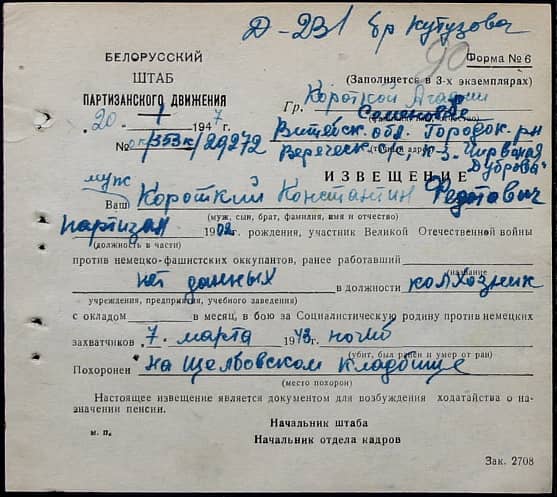 Д-231 бр Кутузова
90
БЕЛОРУССКИЙ
ШТАБ
ПАРТИЗАНСКОГО ДВИЖЕНИЯ
20 1 1947
№ ок/353к/29272
Форма № 6
(Заполняется в 3-х экземплярах)
Гр. Короткой Агафии
Семеновне
Витебск. обл. Городок. рн
Вереческ. с/с, к-з. "Чирвоная
Дуброва"
ИЗВЕЩЕНИЕ
муж
Ваш Короткий Константин Федотович
(муж, сын, брат, фамилия, имя и отчество)
партизан 1902 г. рождения, участник Великой Отечественной войны
(должность в части)
против немецко-фашистских оккупантов, ранее работавший
название
нет данных в должности колхозник
учреждения, предприятия, учебного заведения)
с окладом в месяц, в бою за Социалистическую родину против немецких
захватчиков 7. марта 1943 погиб
(убит, был ранен и умер от ран)
Похоронен на Щелбовском кладбище
(место похорон)
Настоящее извещение является документом для возбуждения ходатайства о на-
значении пенсии.
Начальник штаба
м. п.
Начальник отдела кадров
Зак. 2708